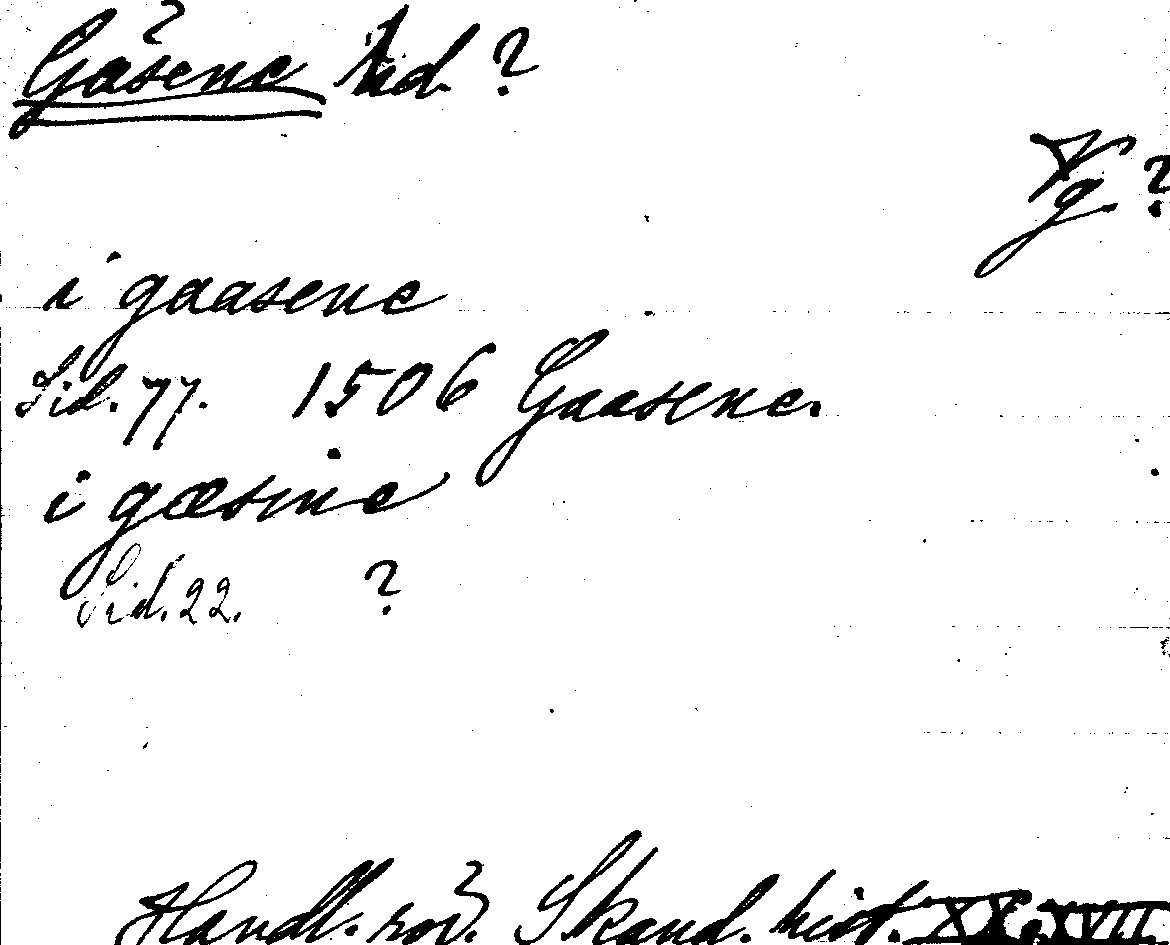 Gåsene hd. ?
Vg. ?
i gaasene
Sid. 77. 1506 Gaasene.
i gæsine
Sid. 22. ?
Handl. rör. Skand. hist.